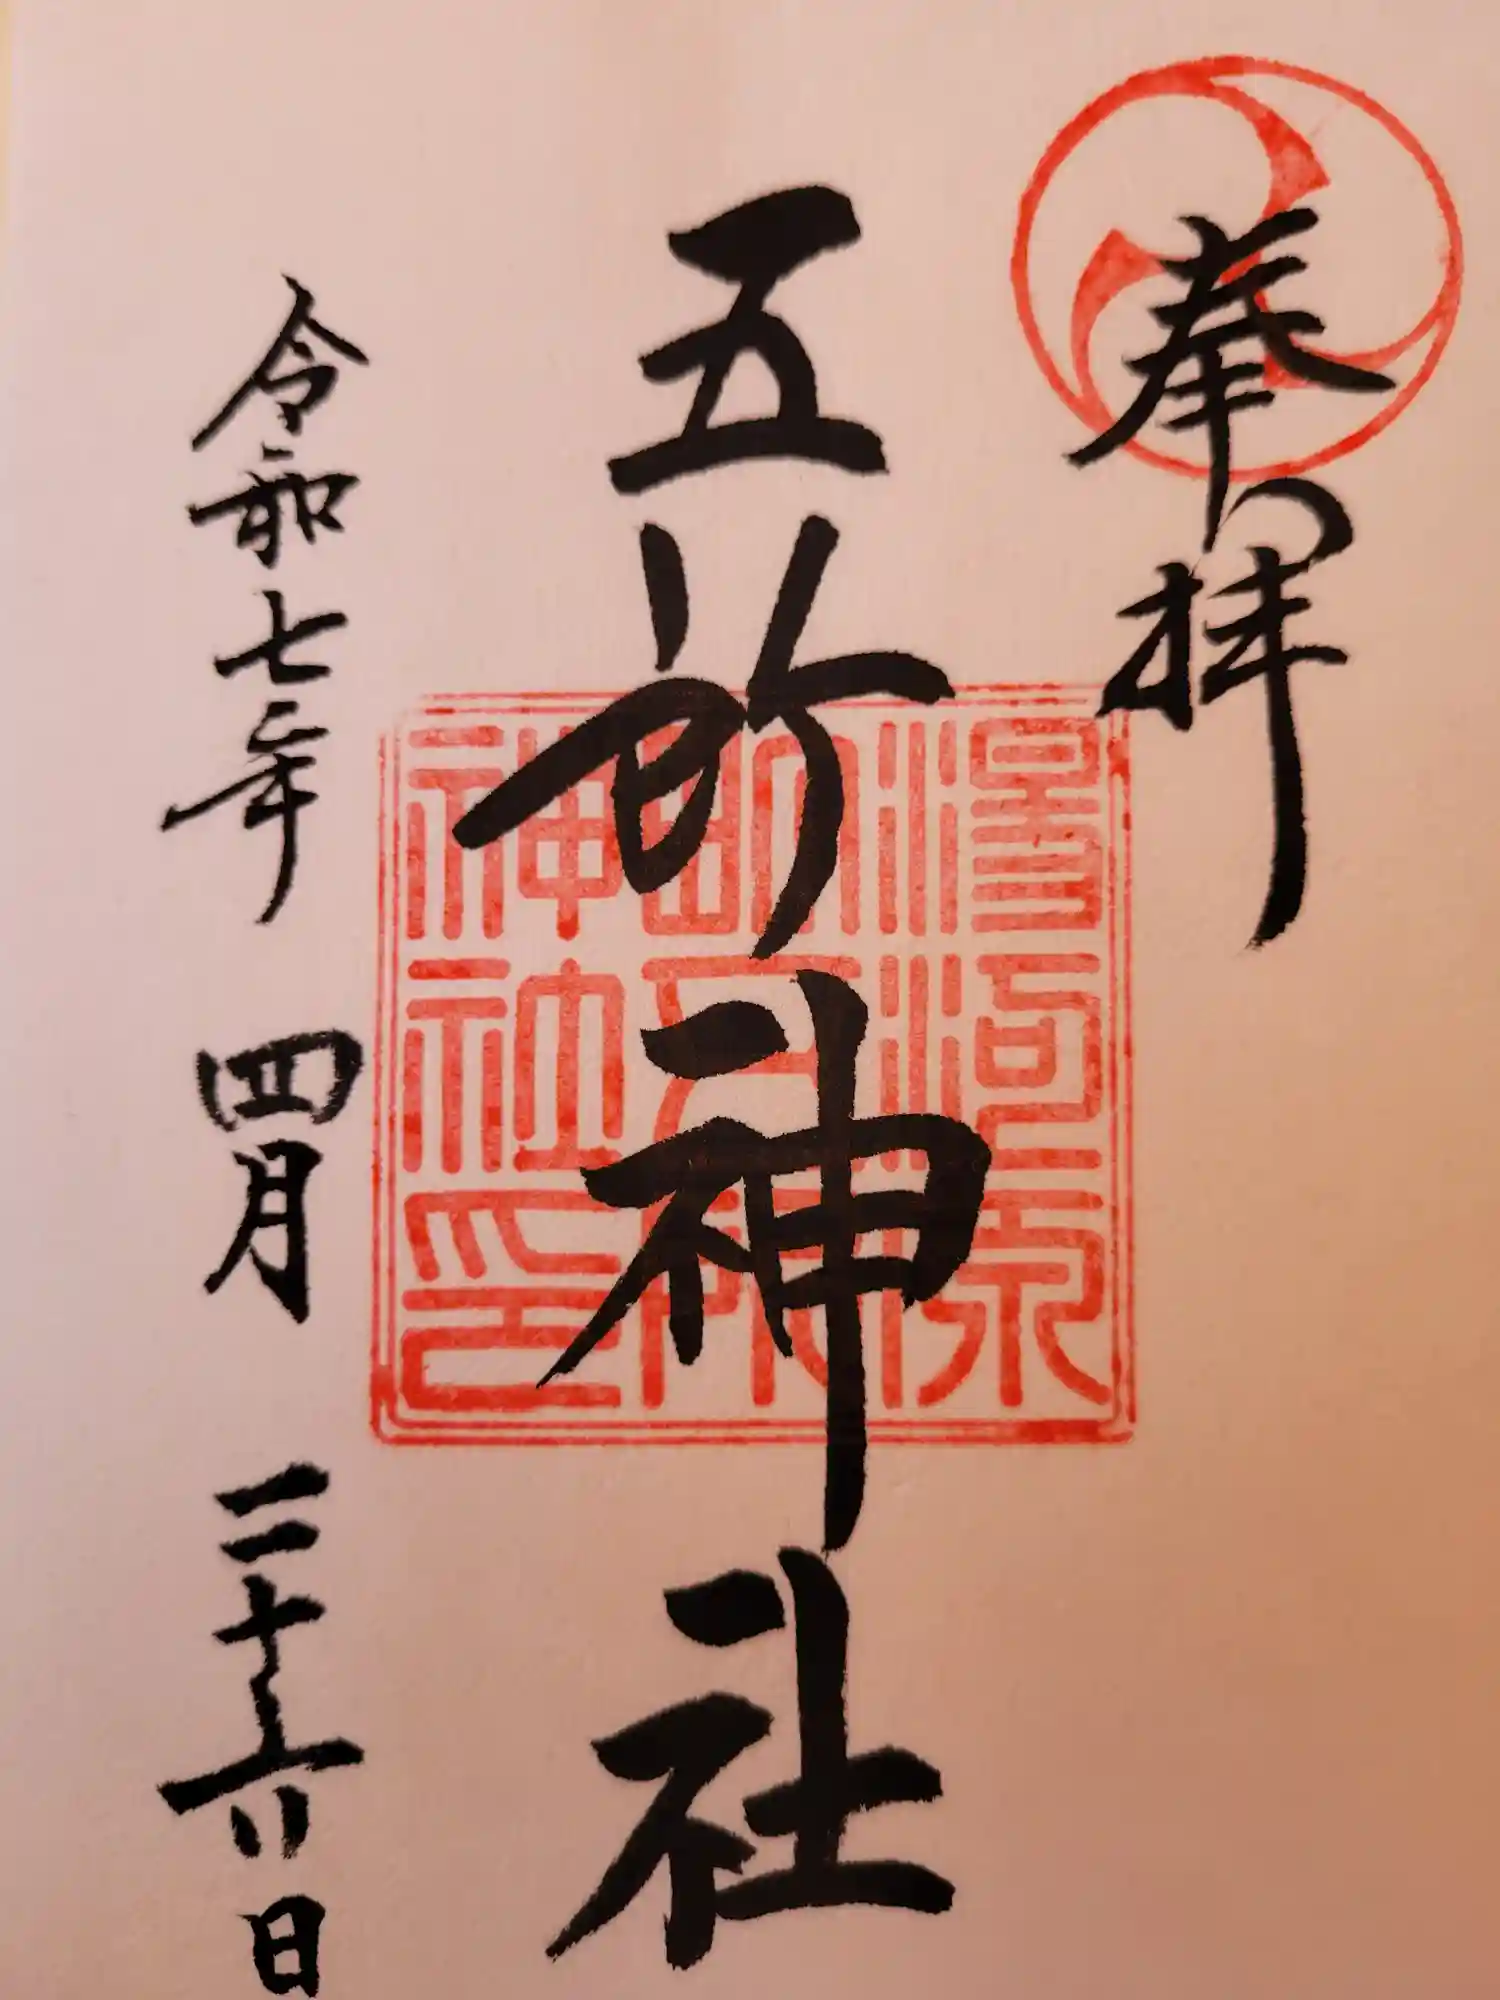 奉拝
五所神社
湯河原
町五所
神社印
令和七年 四月 二十六日